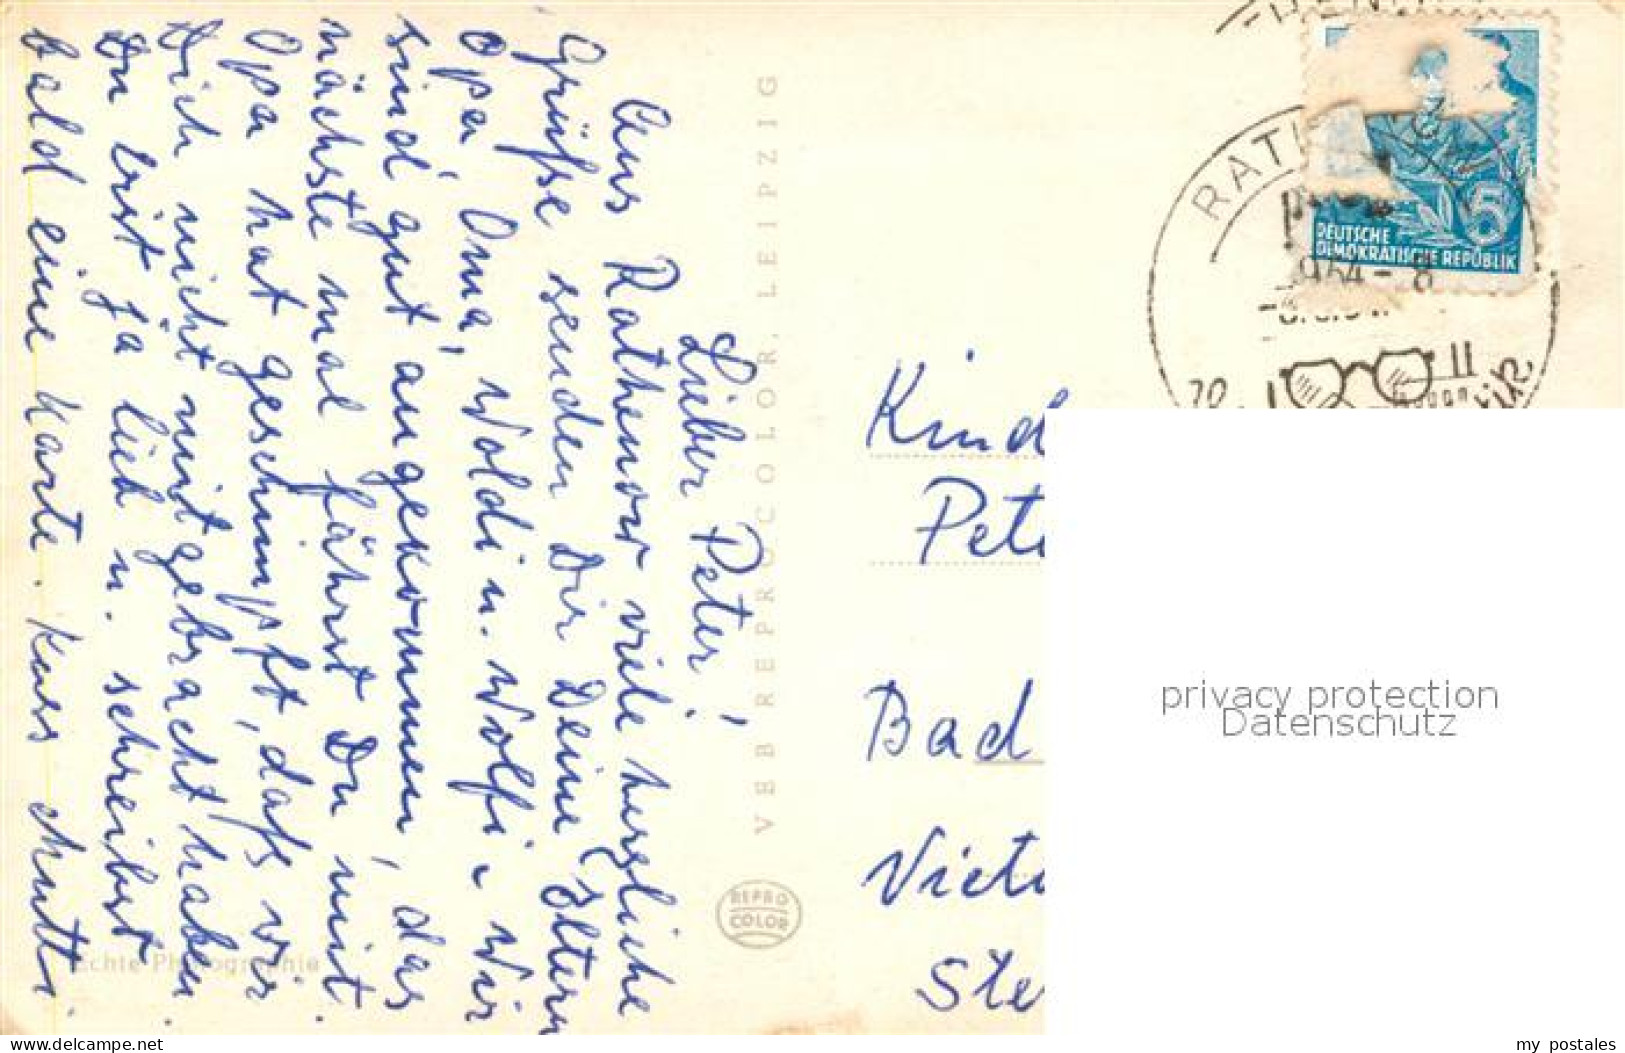 Lieber Peter!
Aus Rathenow viele herzliche
Grüße senden Dir Deine Eltern,
Opa, Oma, Woldi u. Wolfi. Wir
sind gut angekommen, das
nächste mal fährst Du mit.
Opa hat geschimpft, daß wir
Dich nicht mitgebracht haben.
Du bist ja lieb u. schreibst
bald eine Karte. Kuss Mutti.
Echte Photographie
VEB REPROCOLOR, LEIPZIG
REPRO
COLOR
RAT
5
DEUTSCHE
DEMOKRATISCHE REPUBLIK
Kind
Pet
Bad
Viet
Ste
privacy protection
Datenschutz
delcampe.net
my_postales